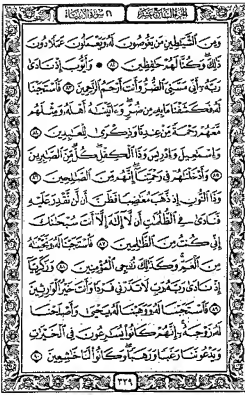 الجزء السابع عشر ٢١ سورة الأنبياء
وَمِنَ ٱلشَّيَٰطِينِ مَن يَغُوصُونَ لَهُۥ وَيَعْمَلُونَ عَمَلًا دُونَ
ذَٰلِكَ وَكُنَّا لَهُمْ حَٰفِظِينَ ٨٢ وَأَيُّوبَ إِذْ نَادَىٰ
رَبَّهُۥٓ أَنِّى مَسَّنِىَ ٱلضُّرُّ وَأَنتَ أَرْحَمُ ٱلرَّٰحِمِينَ ٨٣ فَٱسْتَجَبْنَا
لَهُۥ فَكَشَفْنَا مَا بِهِۦ مِن ضُرٍّ وَءَاتَيْنَٰهُ أَهْلَهُۥ وَمِثْلَهُم
مَّعَهُمْ رَحْمَةً مِّنْ عِندِنَا وَذِكْرَىٰ لِلْعَٰبِدِينَ ٨٤
وَإِسْمَٰعِيلَ وَإِدْرِيسَ وَذَا ٱلْكِفْلِ كُلٌّ مِّنَ ٱلصَّٰبِرِينَ ٨٥
وَأَدْخَلْنَٰهُمْ فِى رَحْمَتِنَآ إِنَّهُم مِّنَ ٱلصَّٰلِحِينَ ٨٦
وَذَا ٱلنُّونِ إِذ ذَّهَبَ مُغَٰضِبًا فَظَنَّ أَن لَّن نَّقْدِرَ عَلَيْهِ
فَنَادَىٰ فِى ٱلظُّلُمَٰتِ أَن لَّآ إِلَٰهَ إِلَّآ أَنتَ سُبْحَٰنَكَ
إِنِّى كُنتُ مِنَ ٱلظَّٰلِمِينَ ٨٧ فَٱسْتَجَبْنَا لَهُۥ وَنَجَّيْنَٰهُ
مِنَ ٱلْغَمِّ وَكَذَٰلِكَ نُۨجِى ٱلْمُؤْمِنِينَ ٨٨ وَزَكَرِيَّآ
إِذْ نَادَىٰ رَبَّهُۥ رَبِّ لَا تَذَرْنِى فَرْدًا وَأَنتَ خَيْرُ ٱلْوَٰرِثِينَ
٨٩ فَٱسْتَجَبْنَا لَهُۥ وَوَهَبْنَا لَهُۥ يَحْيَىٰ وَأَصْلَحْنَا
لَهُۥ زَوْجَهُۥٓ إِنَّهُمْ كَانُوا۟ يُسَٰرِعُونَ فِى ٱلْخَيْرَٰتِ
وَيَدْعُونَنَا رَغَبًا وَرَهَبًا وَكَانُوا۟ لَنَا خَٰشِعِينَ ٩٠
٣٢٩